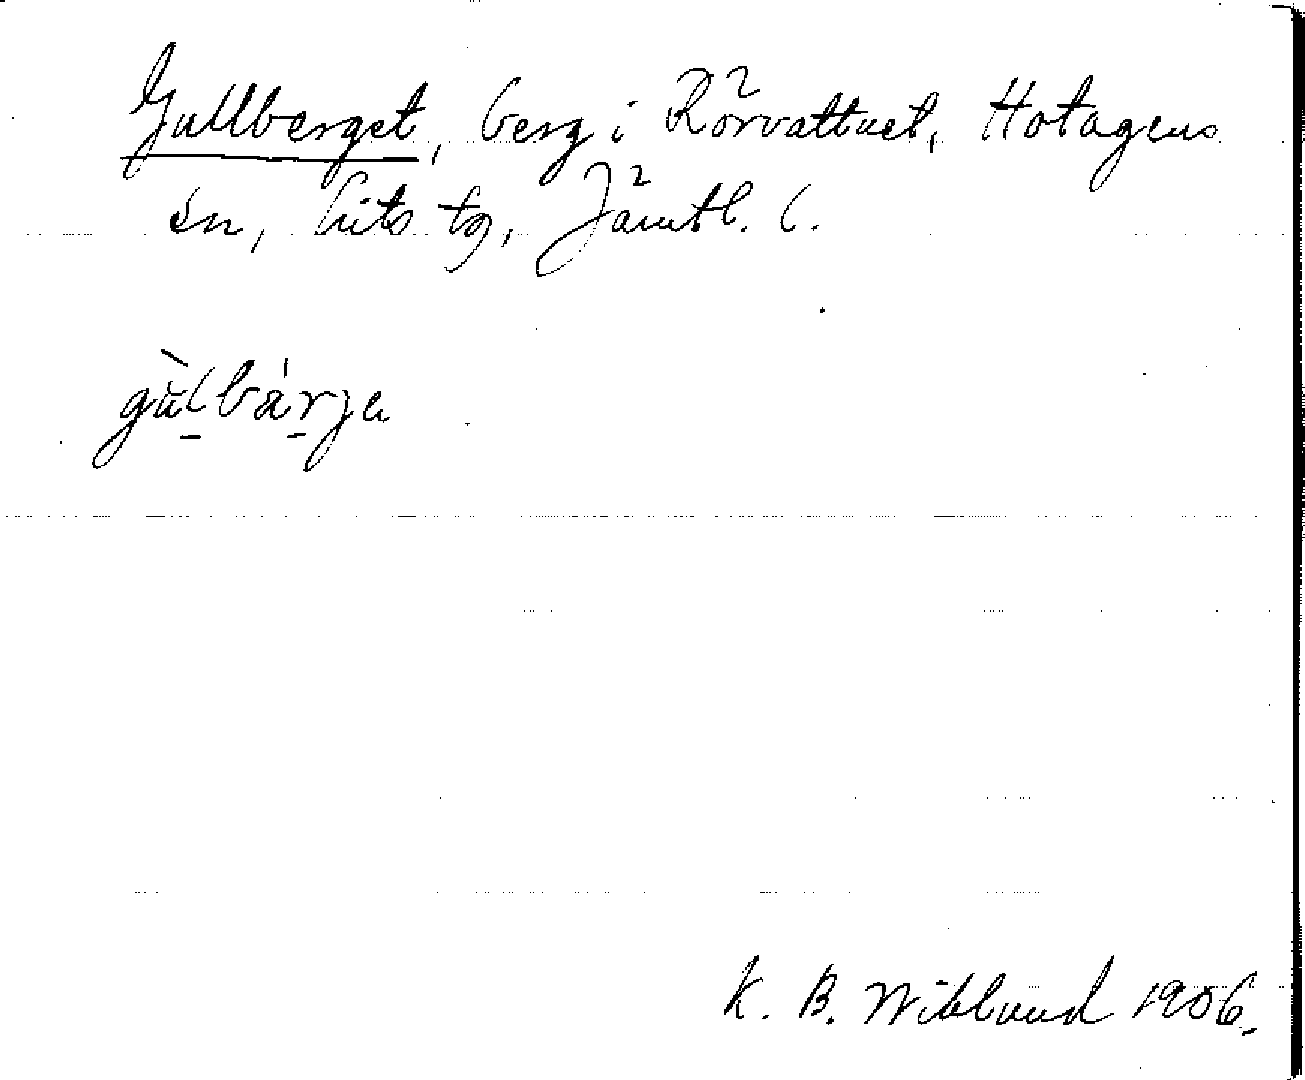 Gullberget, berg i Rörvattnet, Hotagens
sn, Lits tg, Jämtl. l.
gùlbárja
K. B. Wiklund 1906.